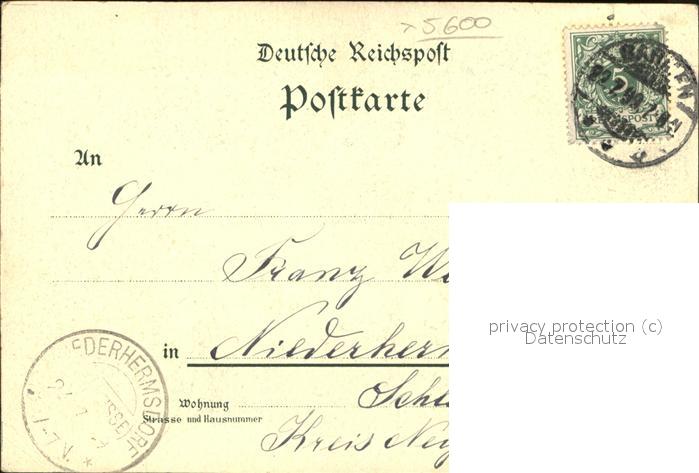 5600
Deutsche Reichspost
Postkarte
An
Herrn
Franz
in Niederherm
Wohnung
Strasse und Hausnummer
Schl
Kreis
EDERHERMSDORF
privacy protection (c)
Datenschutz
5